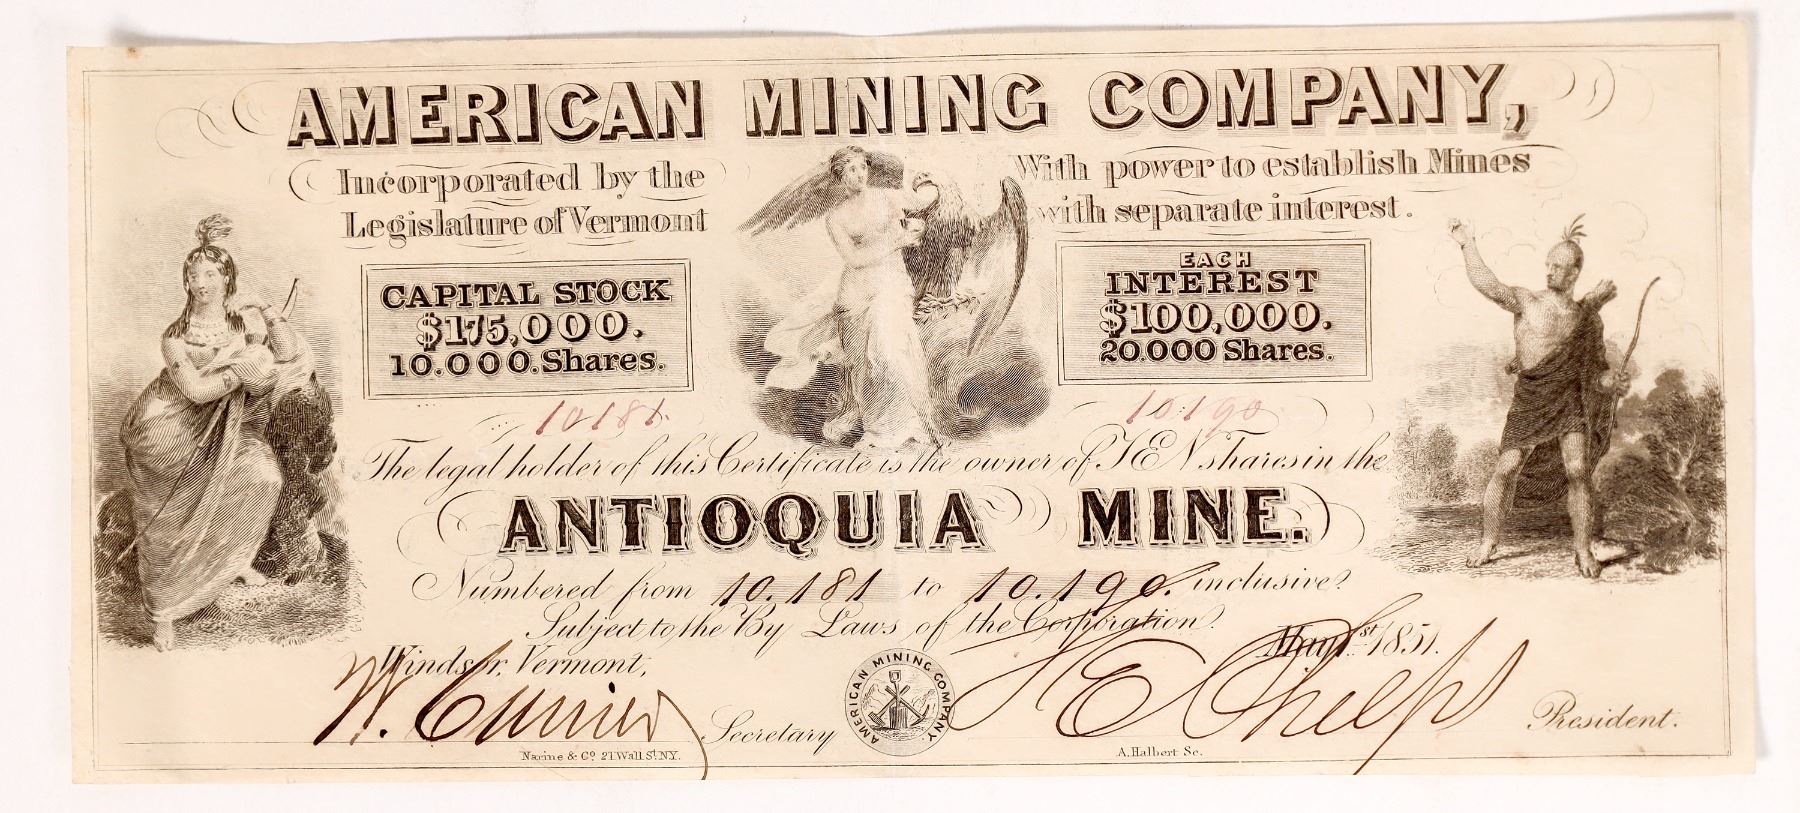 AMERICAN MINING COMPANY,
Incorporated by the
Legislature of Vermont
With power to establish Mines
with separate interest.
CAPITAL STOCK
$175,000.
10.000. Shares.
EACH
INTEREST
$100,000.
20.000 Shares.
10181.
10190
The legal holder of this Certificate is the owner of TEN shares in the
ANTIOQUIA MINE.
Numbered from 10.181 to 10.190. inclusive.
Subject to the By Laws of the Corporation.
Windsor, Vermont,
May 1st 1851.
W. Currier
Secretary
AMERICAN MINING COMPANY.
F E Phelps
President.
Narine & Co. 21 Wall St. N.Y.
A. Halbert Sc.